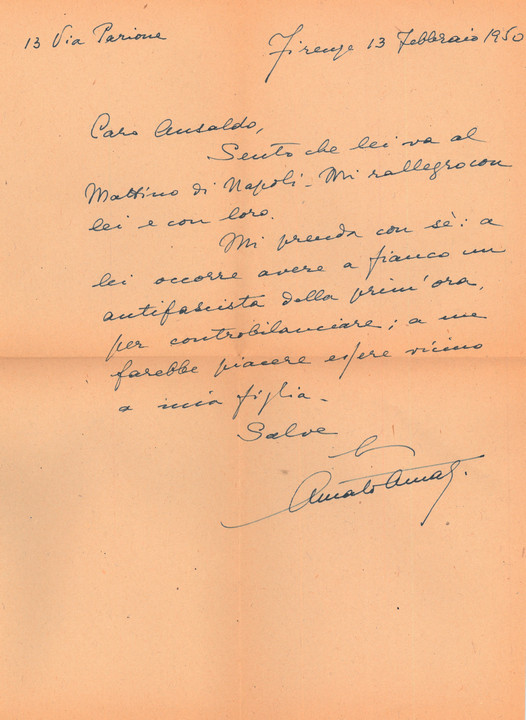 13 Via Parione
Firenze 13 Febbraio 1950
Caro Ansaldo,
Sento che lei va al
Mattino di Napoli - Mi rallegro con
lei e con loro.
Mi prenda con sè: a
lei occorre avere a fianco un
antifascista della prim'ora,
per controbilanciare; a me
farebbe piacere essere vicino
a mia figlia -
Salve
Amato